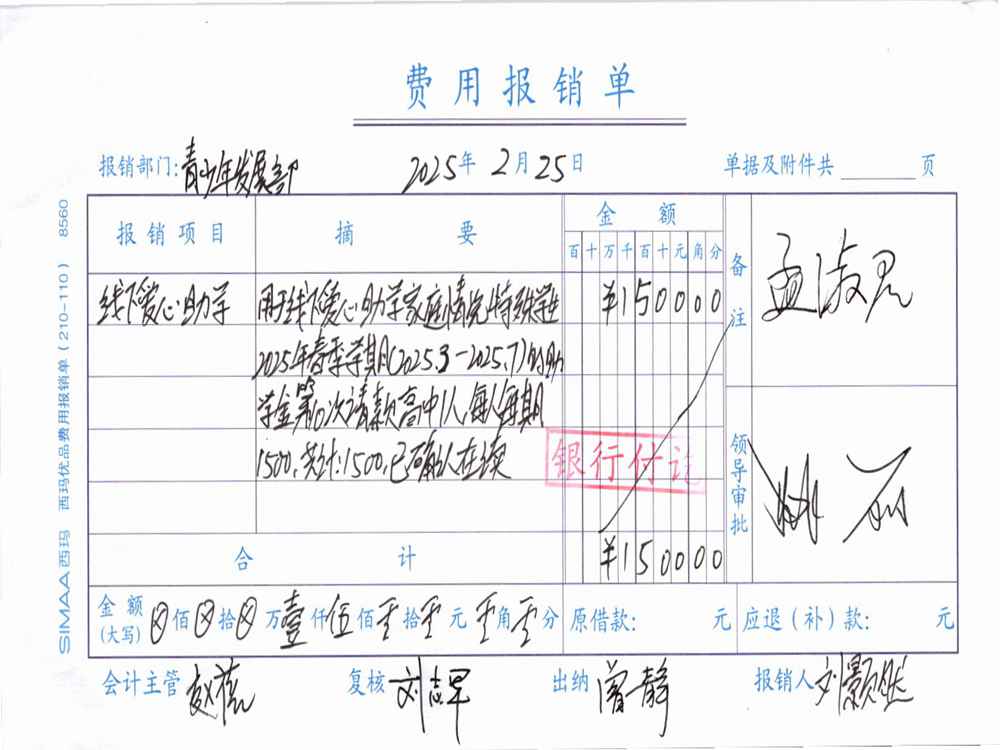 费用报销单
报销部门：青少年发展部 2025年2月25日 单据及附件共 页
报销项目 摘要 金额 备注 孟淑君
百十万千百十元角分
线下爱心助学 用于线下爱心助学家庭情况特殊学生 ¥150000
2025年春季学期(2025.3-2025.7)的助
学金第10次请款高中1人,每人每期
1500,共计:1500,已确认在读
银行付讫
领导审批
合计 ¥150000
金额(大写) 佰 拾 万壹仟伍佰零拾零元零角零分 原借款： 元 应退（补）款： 元
会计主管 复核 刘志军 出纳 曾静 报销人 刘颢然
SIMAA西玛 西玛优品费用报销单（210-110） 8560